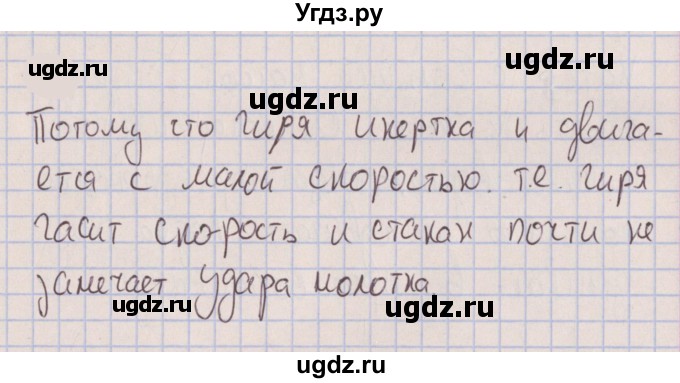 Угдз.ру
ugdz.ru
ugdz.ru
ugdz.ru
Потому что гиря инертна и двига-
ется с малой скоростью. т.е. гиря
гасит скорость и стакан почти не
замечает удара молотка.
ugdz.ru
ugdz.ru
ugdz.ru